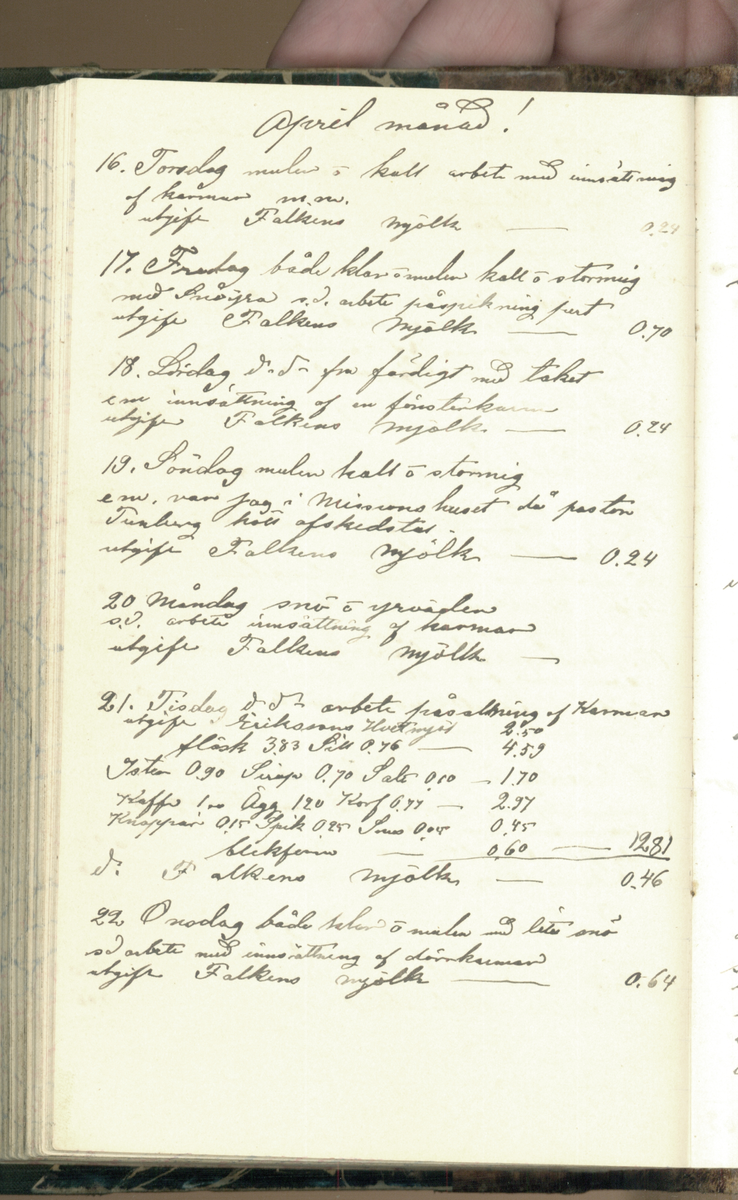 April månad!
16. Torsdag mulen o kalt arbete med innsättning
af karmar m.m.
utgift Falkens mjölk — 0.24
17. Fredag både klar o mulen kalt o stormig
med Snöyra s.d. arbete påspikning
utgift Falkens mjölk — 0.70
18. Lördag d-d- fm färdigt med taket
em innsättning af en fönsterkarm
utgift Falkens mjölk — 0.24
19. Söndag mulen kalt o stormig
em. var jag i Missionshuset då pastor
Tunberg höll afskedstal.
utgift Falkens mjölk — 0.24
20 Måndag snö o yrväder
s.d. arbete innsättning af karmar
utgift Falkens mjölk —
21. Tisdag d-d- arbete af Karmar
utgift Eriksons Hvetmjöl 2.50
fläsk 3.83 Sill 0.76 — 4.59
Ister 0.90 Sirap 0.70 Salt 0.10 — 1.70
Kaffe 1.00 Ägg 1.20 Korf 0.77 — 2.97
Knappar 0.15 Spik 0.25 Snus 0.05 0.45
0.60 — 12.81
d. Falkens mjölk — 0.46
22 Onsdag både klar o mulen med lite snö
s.d arbete med innsättning af dörrkarmar
utgift Falkens mjölk — 0.64